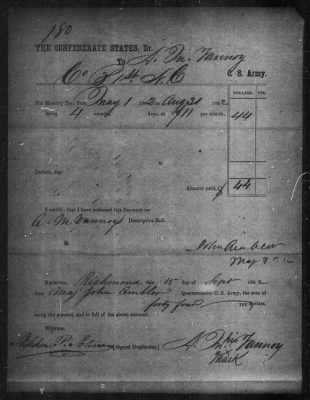 180
THE CONFEDERATE STATES, Dr.
To A. M. Vannoy
Co 1st N.C C. S. Army.
DOLLARS. CTS.
For Monthly Pay, from May 1 1862 to Aug 31 1862
being 4 months, days, at $11 per month, 44
Amount paid, $ 44
I certify, that I have endorsed this Payment on
A. M. Vannoy's Descriptive Roll.
John Ambler
Maj
RECEIVED, Richmond this 15 day of Sept 1862
from Maj John Ambler Quartermaster C. S. Army, the sum of
forty four Dollars,
being the amount, and in full of the above account.
Witness.
Stephen P. (Signed Duplicates.) A. M. his Vannoy
mark